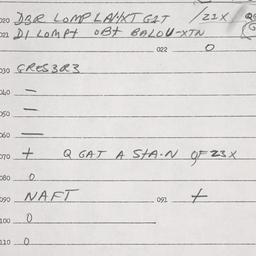 020 DBR LOMP LAHXT GAT / 21X
021 DI LOMPT OBT BALOU-XTN
022 0
030 GRES3R3
040 —
050 —
060 —
070 + Q GAT A STA·N OF 23X
080 0
090 NAFT 091 +
100 0
110 0